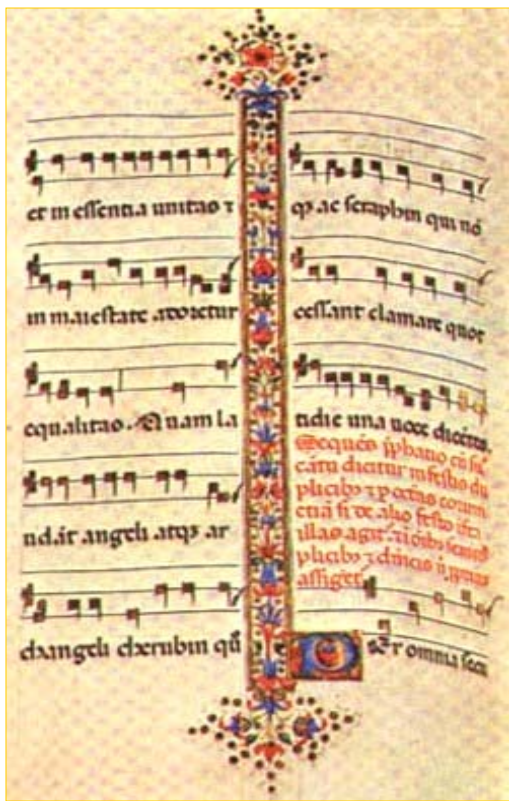 et in essentia unitas ⁊
in maiestate adoretur
equalitas. Quam la
udāt angeli atqȝ ar
changeli cherubin
qȝ ac seraphin qui nō
cessant clamare quot
tidie una uoce dicētes.
Sequēs p̄phatio cū suo
cātu dicitur in festis du
plicibȝ ⁊ p octauas eorum
etiā si de alio festo ifra
illas ⁊ semid
plicibȝ ⁊ dnicis
omnia secu